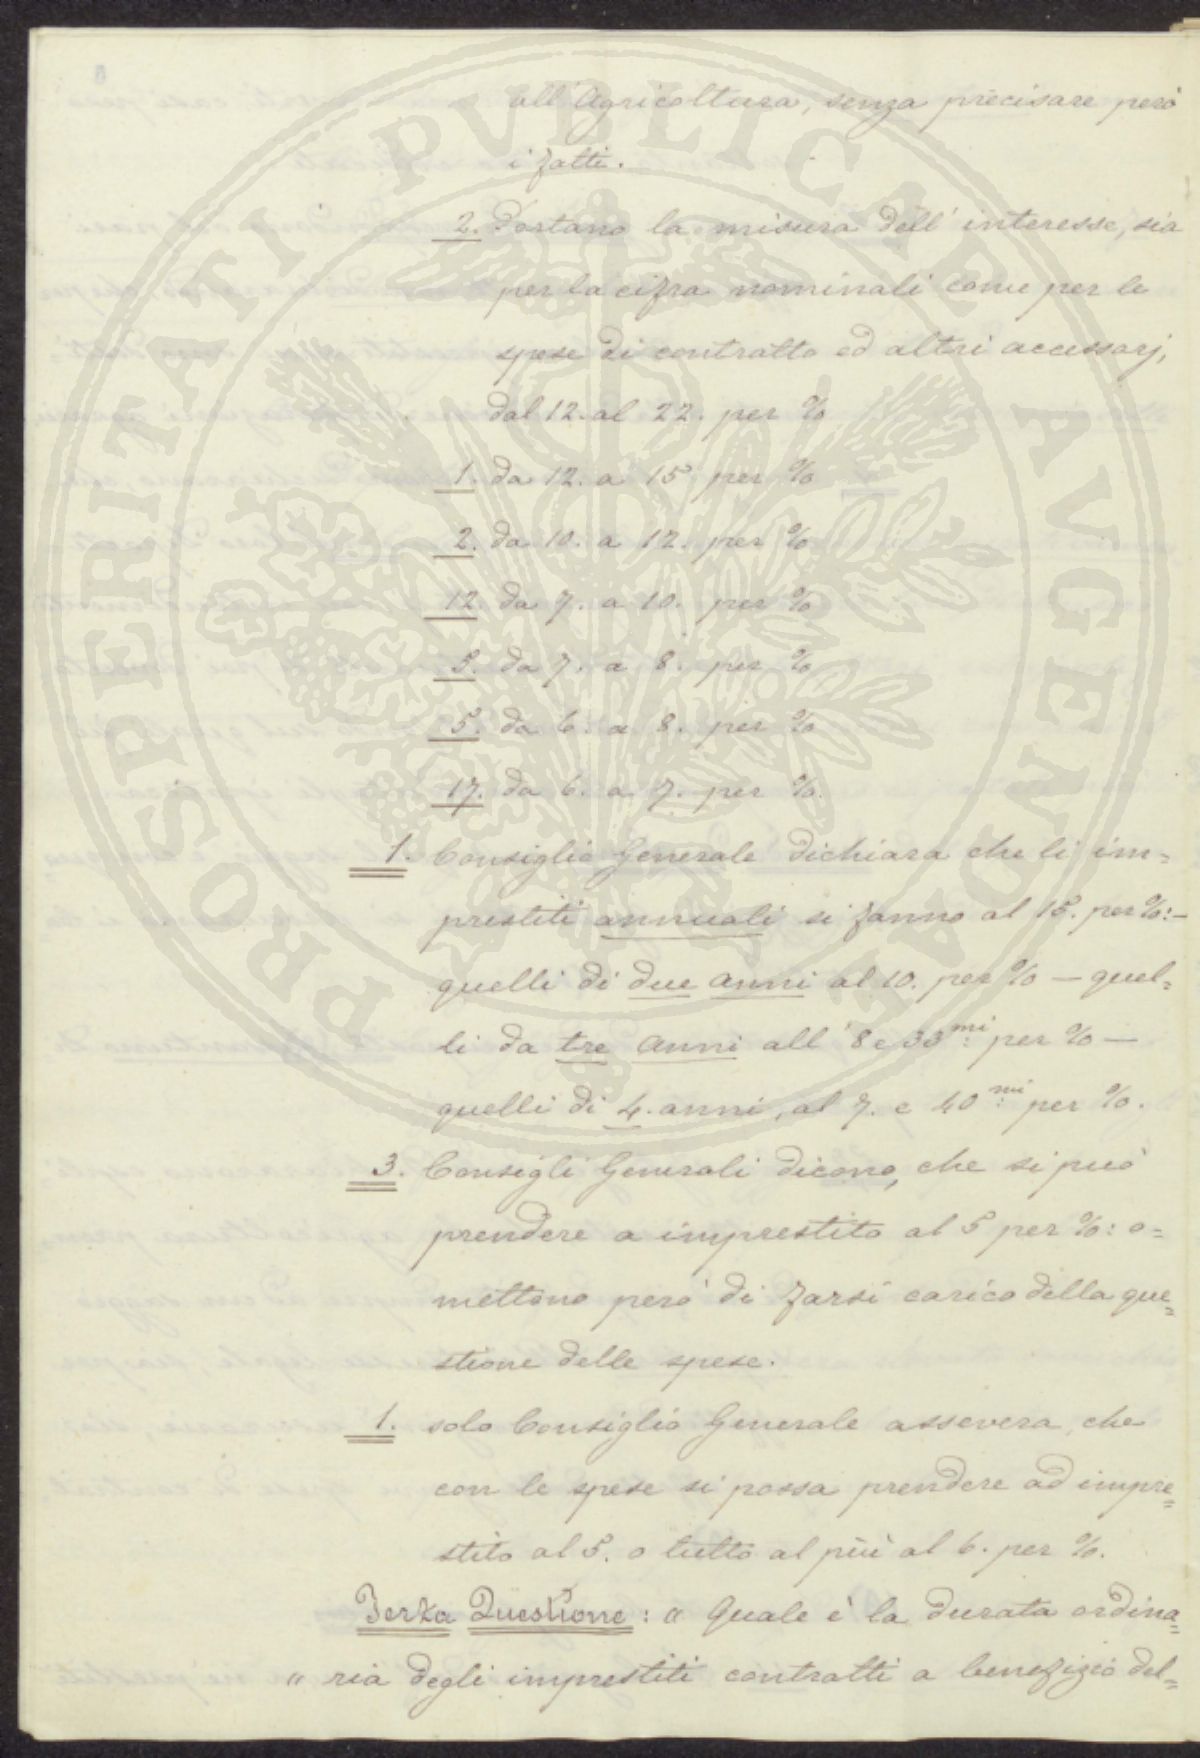 all' Agricoltura, senza precisare però
i fatti.
2. Portano la misura dell' interesse, sia
per la cifra nominali come per le
spese di contratto ed altri accessarj,
dal 12. al 22. per %
1. da 12. a 15 per %
2. da 10. a 12. per %
12. da 7. a 10. per %
5. da 7. a 8. per %
5. da 6. a 8. per %
17. da 6. a 7. per %.
1. Consiglio Generale dichiara che li im=
prestiti annuali si fanno al 15. per %:-
quelli di due anni al 10. per % — quel=
li da tre anni all' 8 e 33 mi: per % —
quelli di 4. anni, al 7. e 40 mi: per %.
3. Consigli Generali dicono, che si può
prendere a imprestito al 5 per %: o=
mettono però di farsi carico della que=
stione delle spese.
1. solo Consiglio Generale assevera, che
con le spese si possa prendere ad impre=
stito al 5. o tutto al più al 6. per %.
Terza Questione: " Quale è la durata ordina=
" ria degli imprestiti contratti a benefizio del=
PROSPERITATI PVBLICAE AVGENDAE